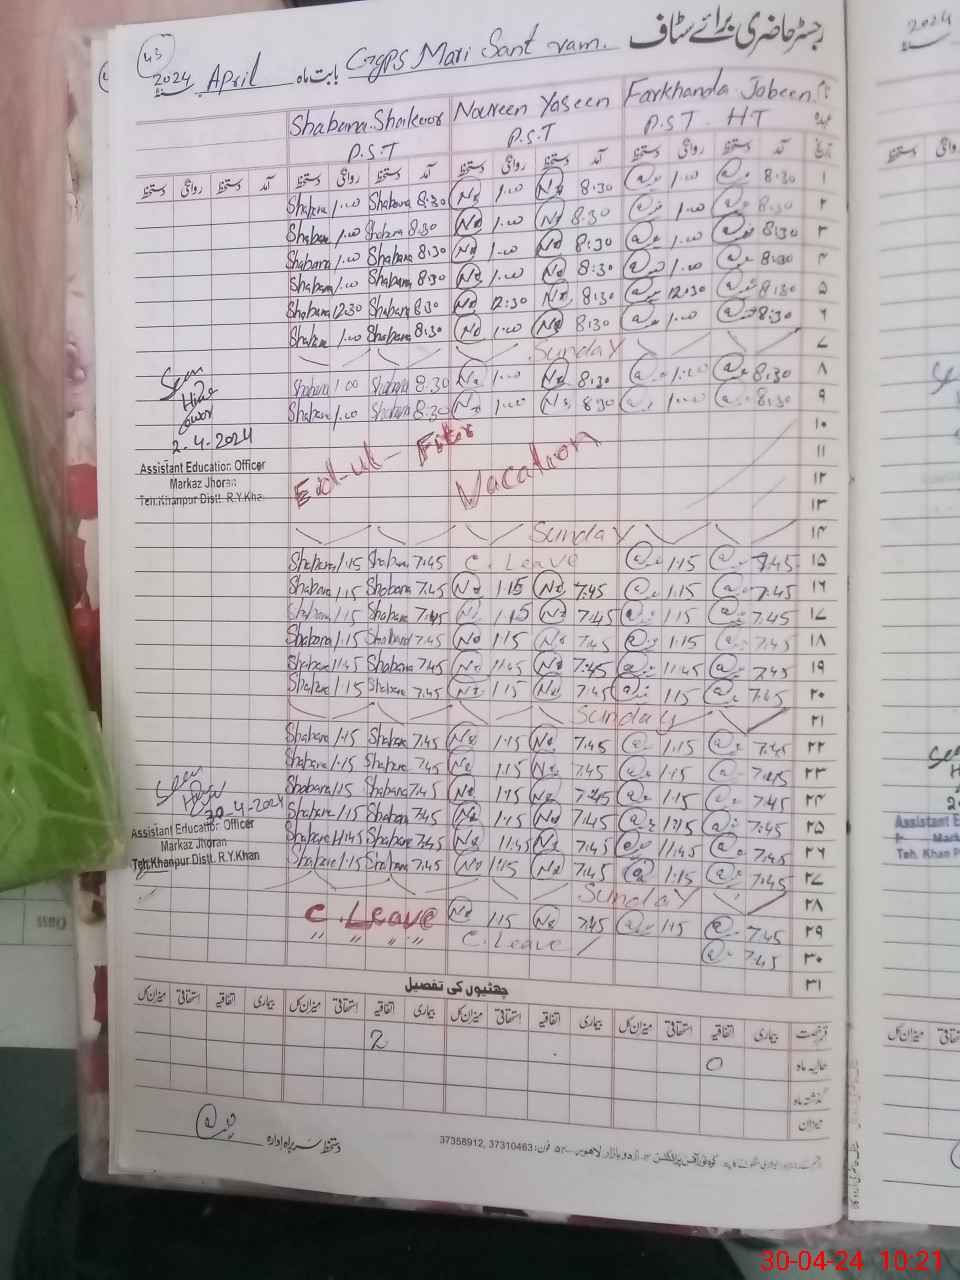 43
رجسٹر حاضری برائے سٹاف
2024 April بابت ماہ GGPS Mari Sant ram.
2024
Shabana Shakoor Noureen Yaseen Farkhanda Jabeen نام
P.S.T P.S.T P.S.T HT عہدہ
دستخط روانگی دستخط آمد دستخط روانگی دستخط آمد دستخط روانگی دستخط آمد دستخط روانگی دستخط آمد تاریخ
Shabana 1.00 Shabana 8:30 Na 1.00 Na 8:30 1.00 8:30 ۱
Shabana 1.00 Shabana 8:30 Na 1.00 Na 8:30 1.00 8:30 ۲
Shabana 1.00 Shabana 8:30 Na 1.00 Na 8:30 1.00 8:30 ۳
Shabana 1.00 Shabana 8:30 Na 1.00 Na 8:30 1.00 8:30 ۴
Shabana 12:30 Shabana 8:30 Na 12:30 Na 8:30 12:30 8:30 ۵
Shabana 1.00 Shabana 8:30 Na 1.00 Na 8:30 1.00 8:30 ۶
Sunday ۷
Shabana 1.00 Shabana 8:30 Na 1.00 Na 8:30 1:00 8:30 ۸
Shabana 1.00 Shabana 8:30 Na 1.00 Na 8:30 1.00 8:30 ۹
۱۰
Eid-ul-Fiter Vacation ۱۱
۱۲
۱۳
Sunday ۱۴
Shabana 1:15 Shabana 7:45 C. Leave 1:15 7:45 ۱۵
Shabana 1:15 Shabana 7:45 Na 1:15 Na 7:45 1:15 7:45 ۱۶
Shabana 1:15 Shabana 7:45 Na 1:15 Na 7:45 1:15 7:45 ۱۷
Shabana 1:15 Shabana 7:45 Na 1:15 Na 7:45 1:15 7:45 ۱۸
Shabana 11:45 Shabana 7:45 Na 11:45 Na 7:45 11:45 7:45 ۱۹
Shabana 1:15 Shabana 7:45 Na 1:15 Na 7:45 1:15 7:45 ۲۰
Sunday ۲۱
Shabana 1:15 Shabana 7:45 Na 1:15 Na 7:45 1:15 7:45 ۲۲
Shabana 1:15 Shabana 7:45 Na 1:15 Na 7:45 1:15 7:45 ۲۳
Shabana 1:15 Shabana 7:45 Na 1:15 Na 7:45 1:15 7:45 ۲۴
Shabana 1:15 Shabana 7:45 Na 1:15 Na 7:45 1:15 7:45 ۲۵
Shabana 11:45 Shabana 7:45 Na 11:45 Na 7:45 11:45 7:45 ۲۶
Shabana 1:15 Shabana 7:45 Na 1:15 Na 7:45 1:15 7:45 ۲۷
Sunday ۲۸
C. Leave Na 1:15 Na 7:45 1:15 7:45 ۲۹
" " " " C. Leave 7:45 ۳۰
۳۱
Seen
2-4-2024
Assistant Education Officer
Markaz Jhoran
Teh: Khanpur Distt. R.Y.Khan
Seen
30-4-2024
Assistant Education Officer
Markaz Jhoran
Teh: Khanpur Distt. R.Y.Khan
چھٹیوں کی تفصیل
میزان کل استحقاقی اتفاقیہ بیماری میزان کل استحقاقی اتفاقیہ بیماری میزان کل استحقاقی اتفاقیہ بیماری میزان کل استحقاقی اتفاقیہ بیماری قسم رخصت
2 0 حالیہ ماہ
گذشتہ ماہ
میزان
دستخط سربراہ ادارہ
37358912, 37310463
دستخط روانگی
Assistant E
Mark
Teh. Khan P
Class
30-04-24 10:21